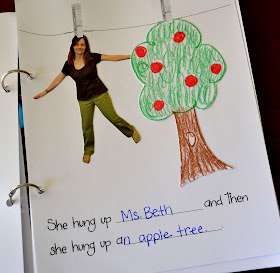 She hung up Ms. Beth and then
she hung up an apple tree.